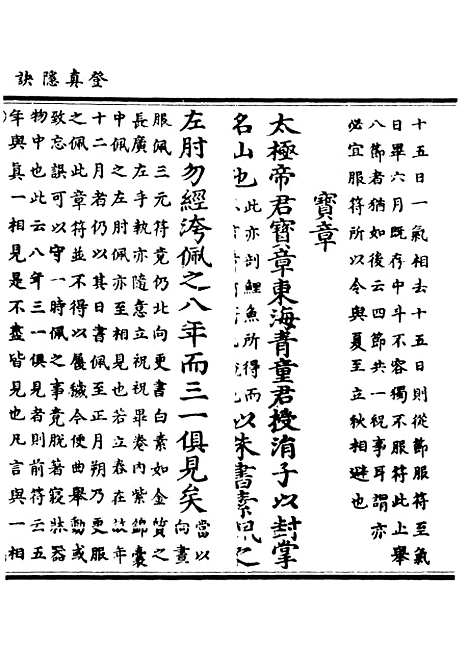 登真隱訣
十五日一氣相去十五日則從節服符至氣
日畢六月既存中斗不容獨不服符此止舉
八節者猶如後云四節共一祝事耳謂亦
必宜服符所以令與夏至立秋相避也
寶章
太極帝君寶章東海青童君授涓子以封掌
名山也此亦剖鯉魚所得而以朱書素
左肘勿經洿佩之八年而三一俱見矣當以向晝
服佩三元符竟仍北向更書白素如金質之
長廣左手執亦隨意立祝祝畢卷內紫錦囊
中佩之左肘佩亦至相見也若立春在年
十二月者仍以其日書佩至正月朔乃更服
之佩此章符並不得以履穢今便曲舉動或
致忘誤可以守一時佩之事竟脫著寢牀器
物中也此云八年三一俱見者則前符云五
年與真一相見是不盡皆見也凡言與一相